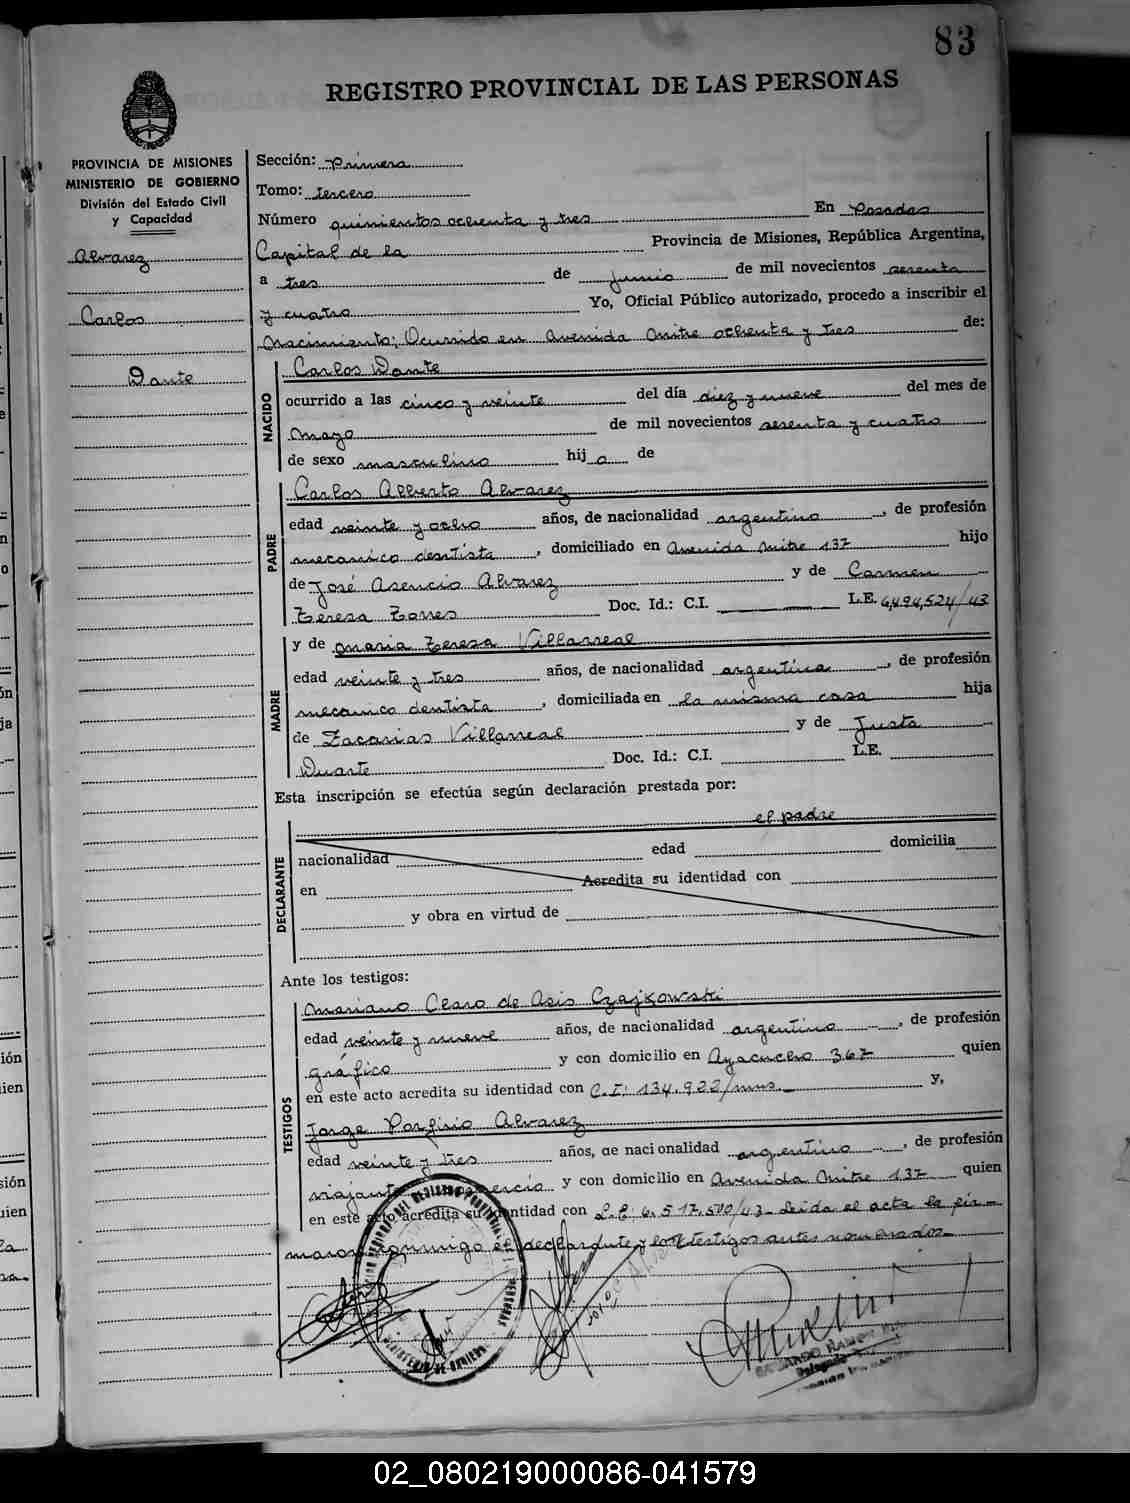 83
REGISTRO PROVINCIAL DE LAS PERSONAS
PROVINCIA DE MISIONES
MINISTERIO DE GOBIERNO
División del Estado Civil
y Capacidad
Alvarez
Carlos
Dante
Sección: Primera
Tomo: tercero
Número quinientos ochenta y tres En Posadas
Capital de la Provincia de Misiones, República Argentina,
a tres de junio de mil novecientos sesenta
y cuatro Yo, Oficial Público autorizado, procedo a inscribir el
nacimiento; Ocurrido en Avenida Mitre ochenta y tres de:
NACIDO
Carlos Dante
ocurrido a las cinco y veinte del día diez y nueve del mes de
Mayo de mil novecientos sesenta y cuatro
de sexo masculino hijo de
PADRE
Carlos Alberto Alvarez
edad veinte y ocho años, de nacionalidad argentino, de profesión
mecanico dentista, domiciliado en Avenida Mitre 137 hijo
de José Asencio Alvarez y de Carmen
Teresa Torres Doc. Id.: C.I. L.E. 6,494,524/43
MADRE
y de Maria Teresa Villarreal
edad veinte y tres años, de nacionalidad argentina, de profesión
mecanico dentista, domiciliada en la misma casa hija
de Zacarias Villarreal y de Justa
Duarte Doc. Id.: C.I. L.E.
Esta inscripción se efectúa según declaración prestada por:
DECLARANTE
el padre
nacionalidad edad domicilia
en Acredita su identidad con
y obra en virtud de
Ante los testigos:
TESTIGOS
Mariano Claro de Asis Czajkowski
edad veinte y nueve años, de nacionalidad argentino, de profesión
gráfico y con domicilio en Ayacucho 367 quien
en este acto acredita su identidad con C.I: 134.922/mns. y,
Jorge Porfirio Alvarez
edad veinte y tres años, de nacionalidad argentino, de profesión
viajante comercio y con domicilio en Avenida Mitre 137 quien
en este acto acredita su identidad con L.E: 6.517.500/43- Leida el acta la fir-
maron conmigo el declarante y los testigos antes nombrados-
02_080219000086-041579